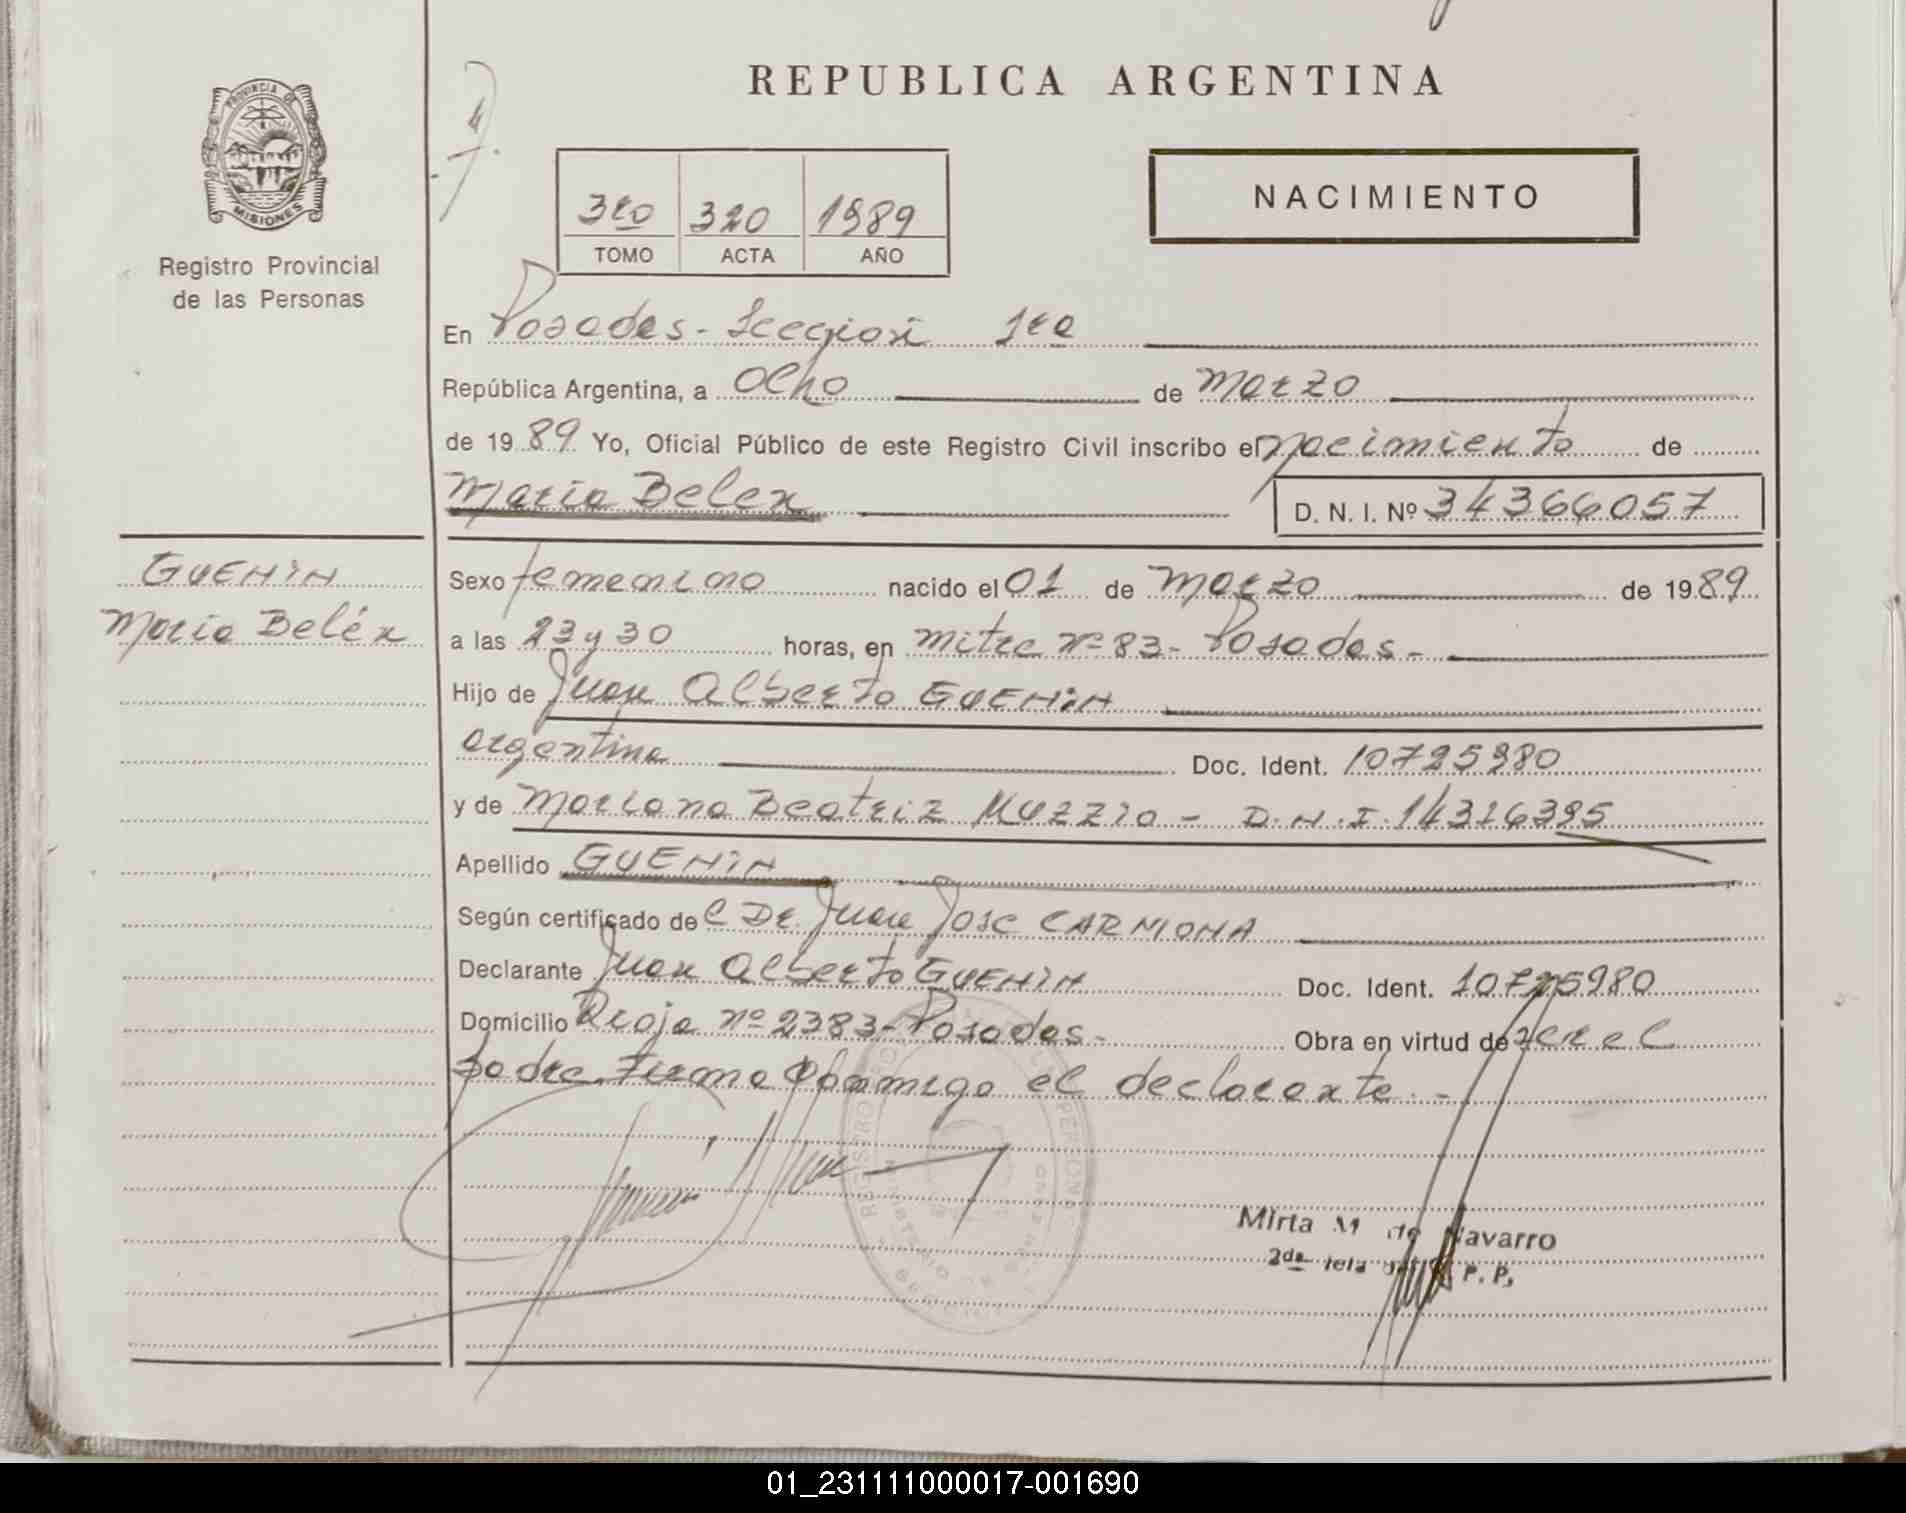 REPUBLICA ARGENTINA
PROVINCIA DE
MISIONES
Registro Provincial
de las Personas
3ro 320 1989
TOMO ACTA AÑO
NACIMIENTO
En Posadas - Seccion 1ra
República Argentina, a Ocho de Marzo
de 1989 Yo, Oficial Público de este Registro Civil inscribo el nacimiento de
Maria Belen D. N. I. Nº 34366057
GUENiN
Maria Belén
Sexo femenino nacido el 01 de Marzo de 1989
a las 23 y 30 horas, en Mitre Nº 83 - Posadas -
Hijo de Juan Alberto GUENiN
argentina Doc. Ident. 10725980
y de Mariana Beatriz MUZZIO - D.N.I. 14316395
Apellido GUENiN
Según certificado de C Dr. Juan Jose CARMONA
Declarante Juan Alberto GUENiN Doc. Ident. 10725980
Domicilio Rioja nº 2383 - Posadas - Obra en virtud de ser el
padre. Firma Conmigo el declarante. -
Mirta M de Navarro
2da P. P.
01_231111000017-001690